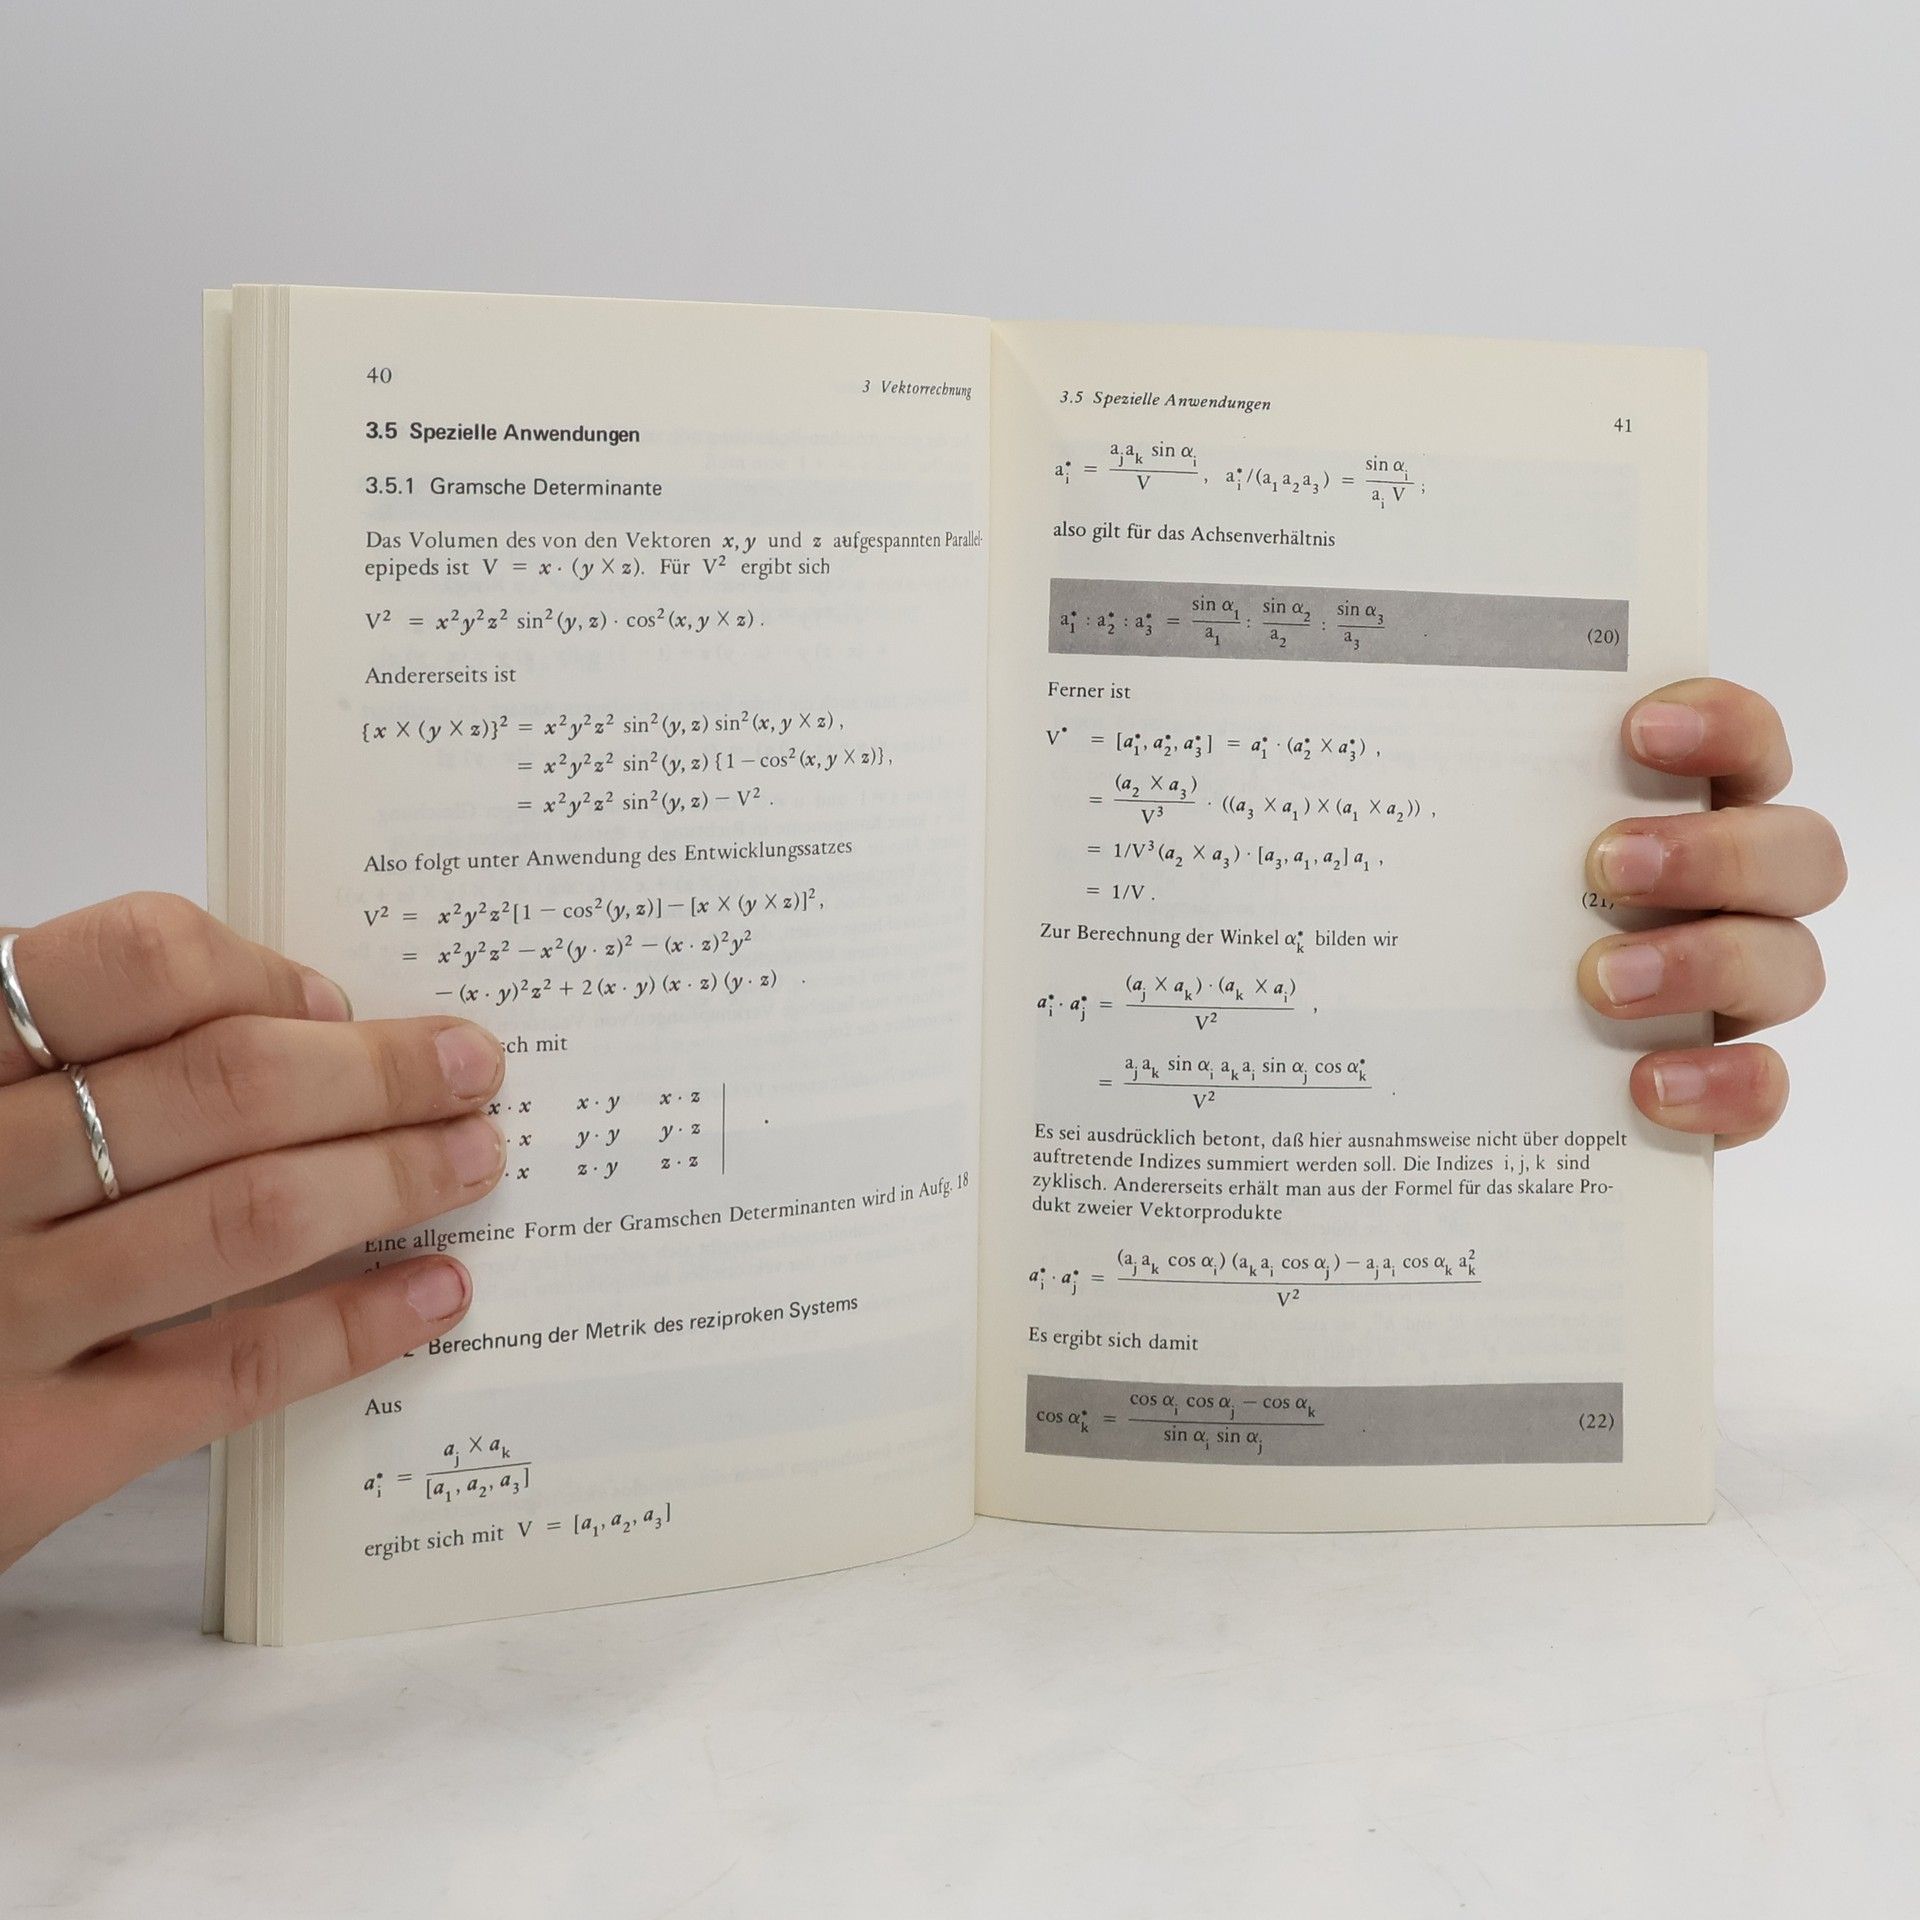 40
3 Vektorrechnung
3.5 Spezielle Anwendungen
3.5.1 Gramsche Determinante
Das Volumen des von den Vektoren x, y und z aufgespannten Parallel-
epipeds ist V = x · (y × z). Für V² ergibt sich
V² = x²y²z² sin²(y, z) · cos²(x, y × z) .
Andererseits ist
{x × (y × z)}² = x²y²z² sin²(y, z) sin²(x, y × z) ,
= x²y²z² sin²(y, z) {1 − cos²(x, y × z)} ,
= x²y²z² sin²(y, z) − V² .
Also folgt unter Anwendung des Entwicklungssatzes
V² = x²y²z²[1 − cos²(y, z)] − [x × (y × z)]² ,
= x²y²z² − x²(y · z)² − (x · z)²y²
− (x · y)²z² + 2 (x · y) (x · z) (y · z) .
mit
x · x x · y x · z
· x y · y y · z
· x z · y z · z | .
Eine allgemeine Form der Gramschen Determinanten wird in Aufg. 18
Berechnung der Metrik des reziproken Systems
Aus
a*ᵢ = (aⱼ × aₖ) / [a₁, a₂, a₃]
ergibt sich mit V = [a₁, a₂, a₃]
3.5 Spezielle Anwendungen
41
a*ᵢ = (aⱼaₖ sin αᵢ) / V , a*ᵢ/(a₁a₂a₃) = (sin αᵢ) / (aᵢ V) ;
also gilt für das Achsenverhältnis
a*₁ : a*₂ : a*₃ = (sin α₁)/a₁ : (sin α₂)/a₂ : (sin α₃)/a₃ (20)
Ferner ist
V* = [a*₁, a*₂, a*₃] = a*₁ · (a*₂ × a*₃) ,
= (a₂ × a₃)/V³ · ((a₃ × a₁) × (a₁ × a₂)) ,
= 1/V³ (a₂ × a₃) · [a₃, a₁, a₂] a₁ ,
= 1/V . (21)
Zur Berechnung der Winkel α*ₖ bilden wir
a*ᵢ · a*ⱼ = ((aⱼ × aₖ) · (aₖ × aᵢ)) / V² ,
= (aⱼaₖ sin αᵢ aₖaᵢ sin αⱼ cos α*ₖ) / V² .
Es sei ausdrücklich betont, daß hier ausnahmsweise nicht über doppelt
auftretende Indizes summiert werden soll. Die Indizes i, j, k sind
zyklisch. Andererseits erhält man aus der Formel für das skalare Pro-
dukt zweier Vektorprodukte
a*ᵢ · a*ⱼ = ((aⱼaₖ cos αᵢ) (aₖaᵢ cos αⱼ) − aⱼaᵢ cos αₖ aₖ²) / V²
Es ergibt sich damit
cos α*ₖ = (cos αᵢ cos αⱼ − cos αₖ) / (sin αᵢ sin αⱼ) (22)